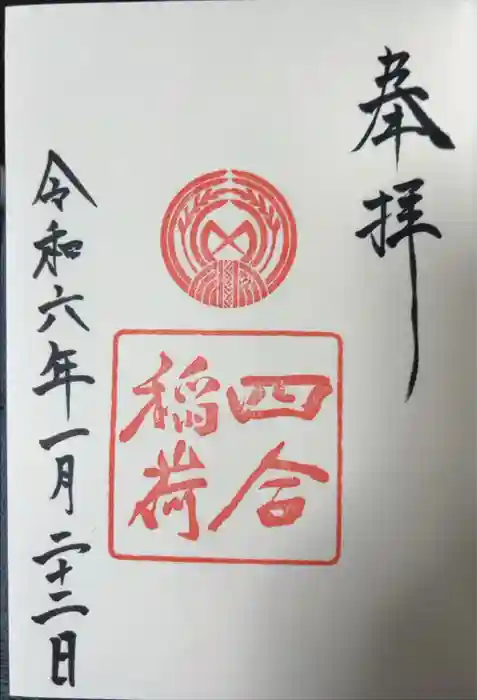 奉拝
四合
稲荷
令和六年一月二十二日